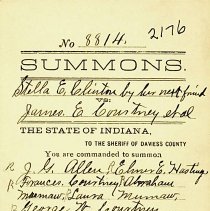 2176
No 8814.
SUMMONS.
Stella E. Clinton by her next friend
VS.
James E Courtney et al
THE STATE OF INDIANA,
TO THE SHERIFF OF DAVIESS COUNTY
You are commanded to summon
R J. G. Allen & Elmer E. Hasting
R Frances Courtney Abraham
Laura
George W Courtney